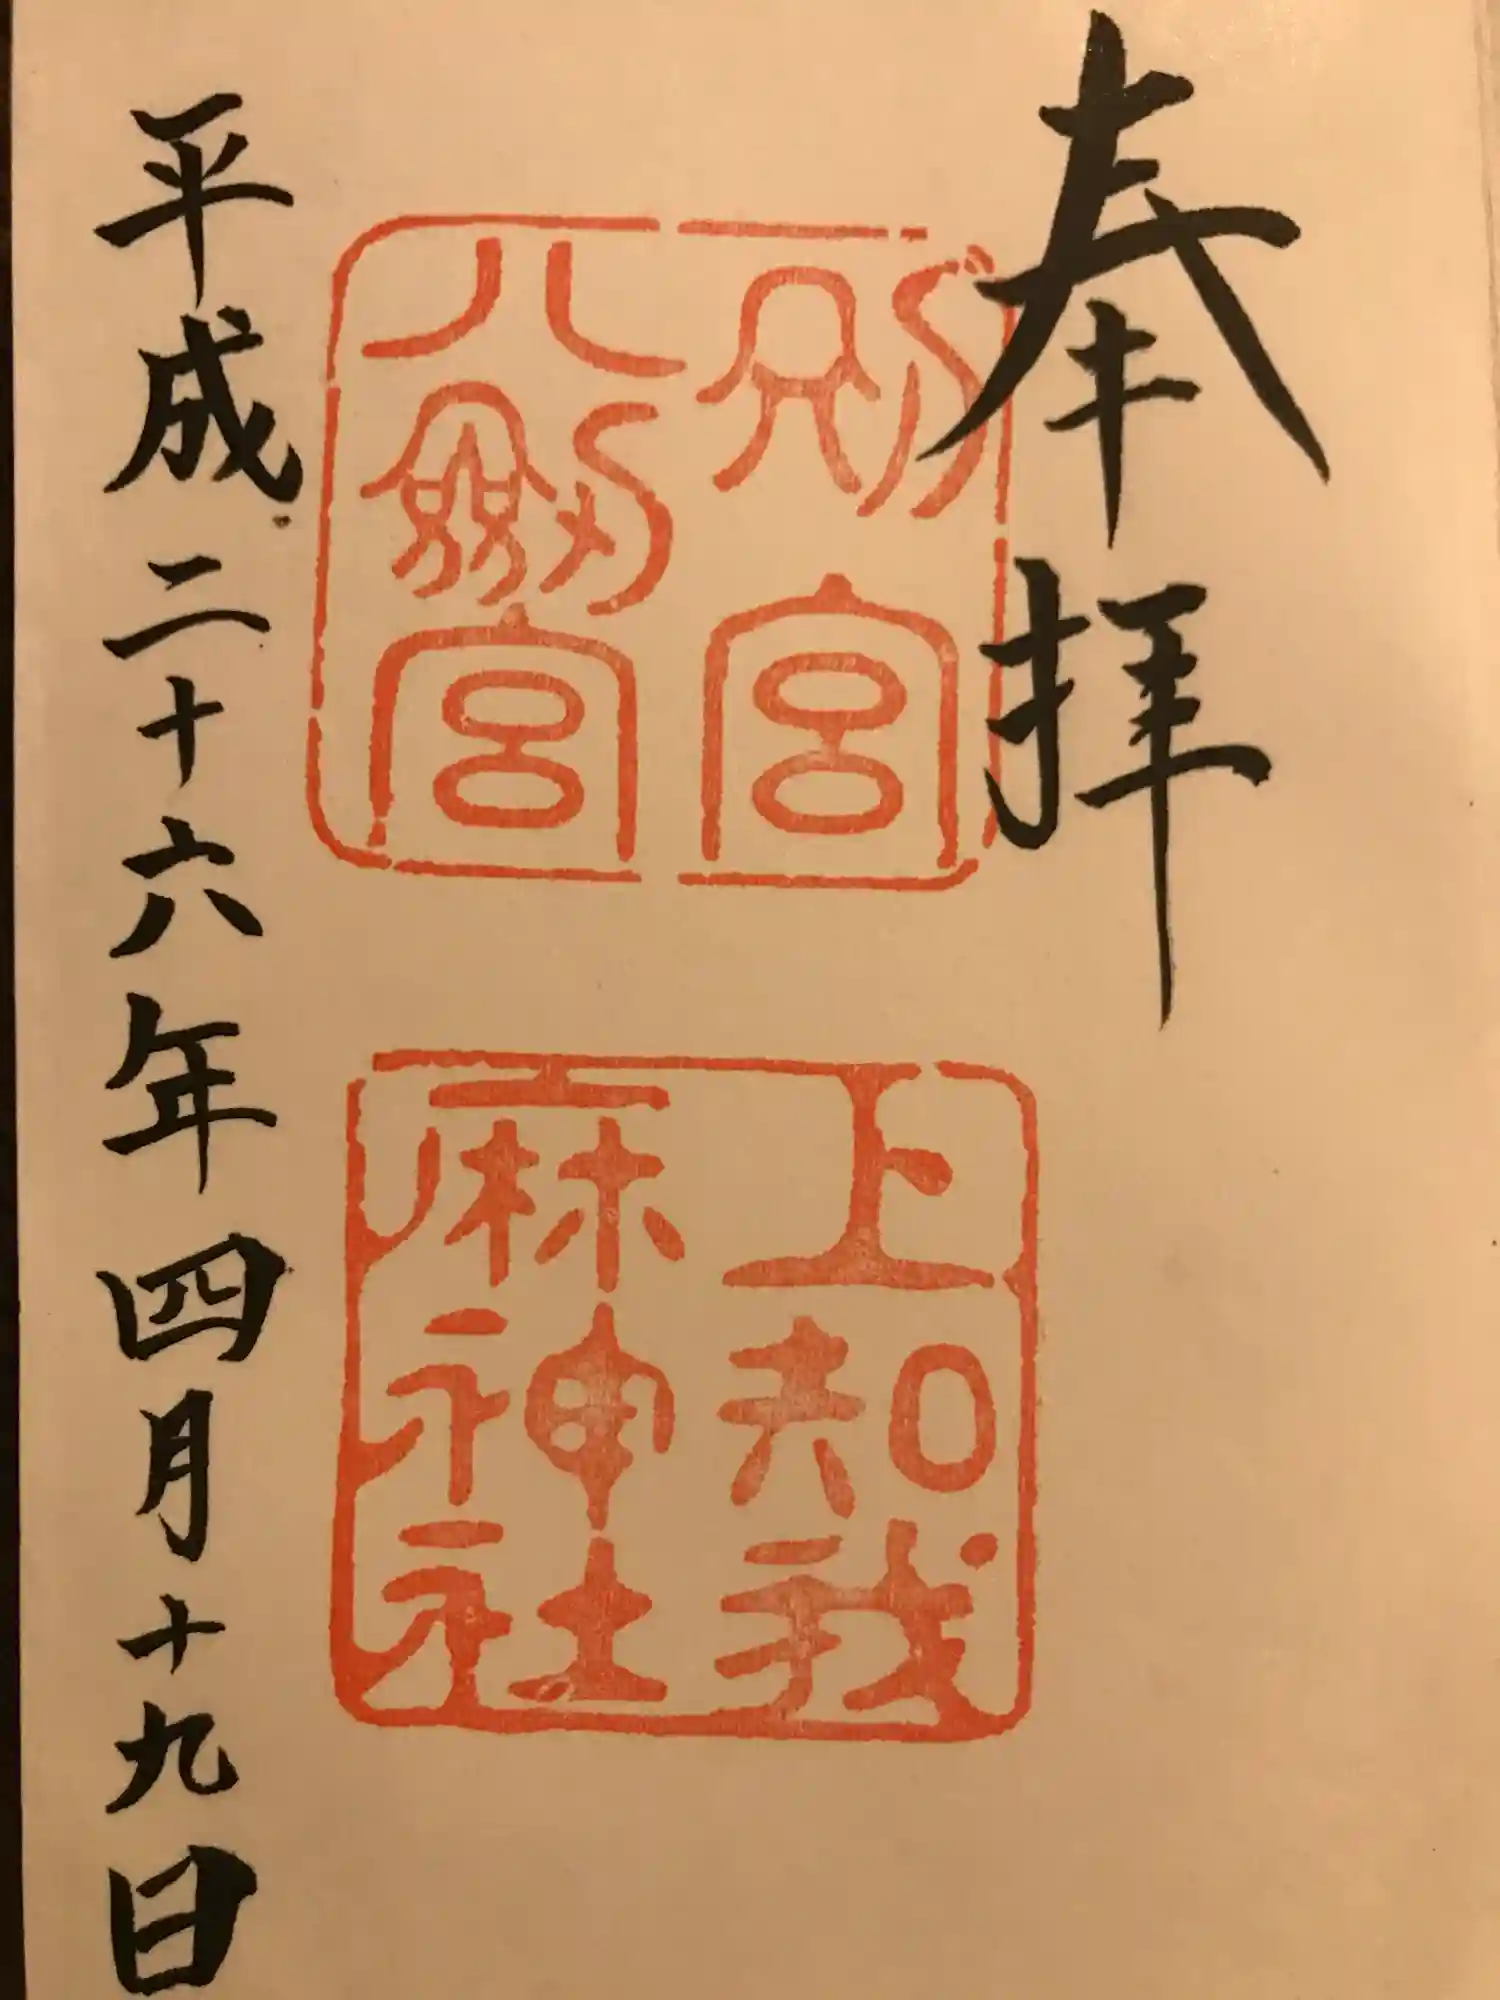 奉拝
別宮
八劔宮
上知我
麻神社
平成二十六年四月十九日